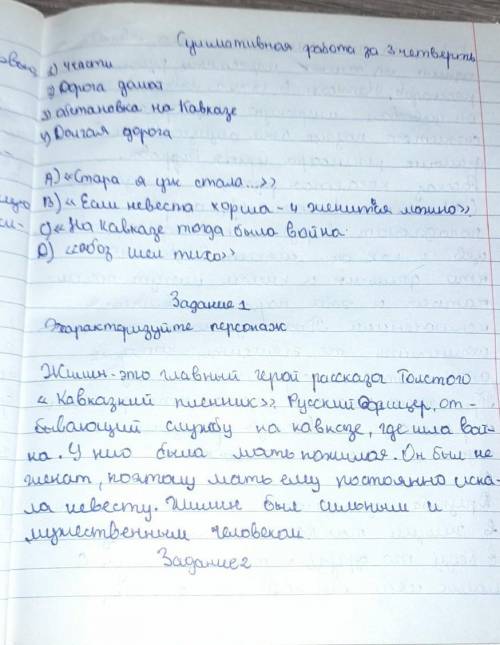 Суммативная работа за 3 четверть
1) части
2) Дорога домой
3) обстановка на Кавказе
4) Долгая дорога
А) «Стара я уж стала...»
В) «Если невеста хорша - и женится можно»
С) «На Кавказе тогда была война
D) «обоз шел тихо»
Задание 1
Характеризуйте персонаж
Жилин-это главный герой рассказа Толстого
«Кавказкий пленник». Русский Офицер, от-
бывающий службу на кавказе, где шла вой-
на. У нио была мать пожилая. Он был не
женат, поэтому мать ему постоянно иска-
ла невесту. Жилин был сильным и
мужественным человеком
Задание 2